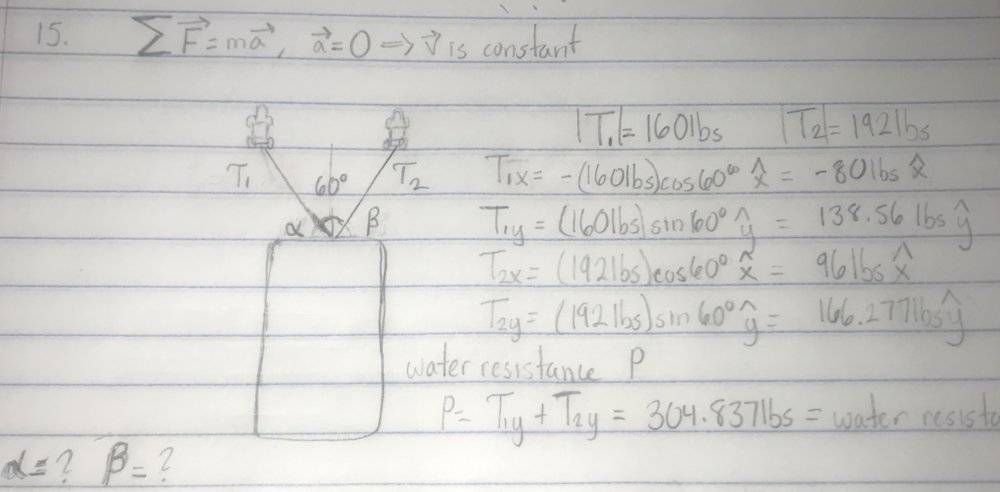 15. ∑F⃗ = ma⃗, a⃗ = 0 => v⃗ is constant
|T₁| = 160lbs |T₂| = 192lbs
T₁ 60° T₂ T₁x = -(160lbs)cos60° x̂ = -80lbs x̂
α β T₁y = (160lbs)sin60° ŷ = 138.56 lbs ŷ
T₂x = (192lbs)cos60° x̂ = 96lbs x̂
T₂y = (192lbs)sin60° ŷ = 166.277lbs ŷ
water resistance P
P = T₁y + T₂y = 304.837lbs = water
α = ? β = ?